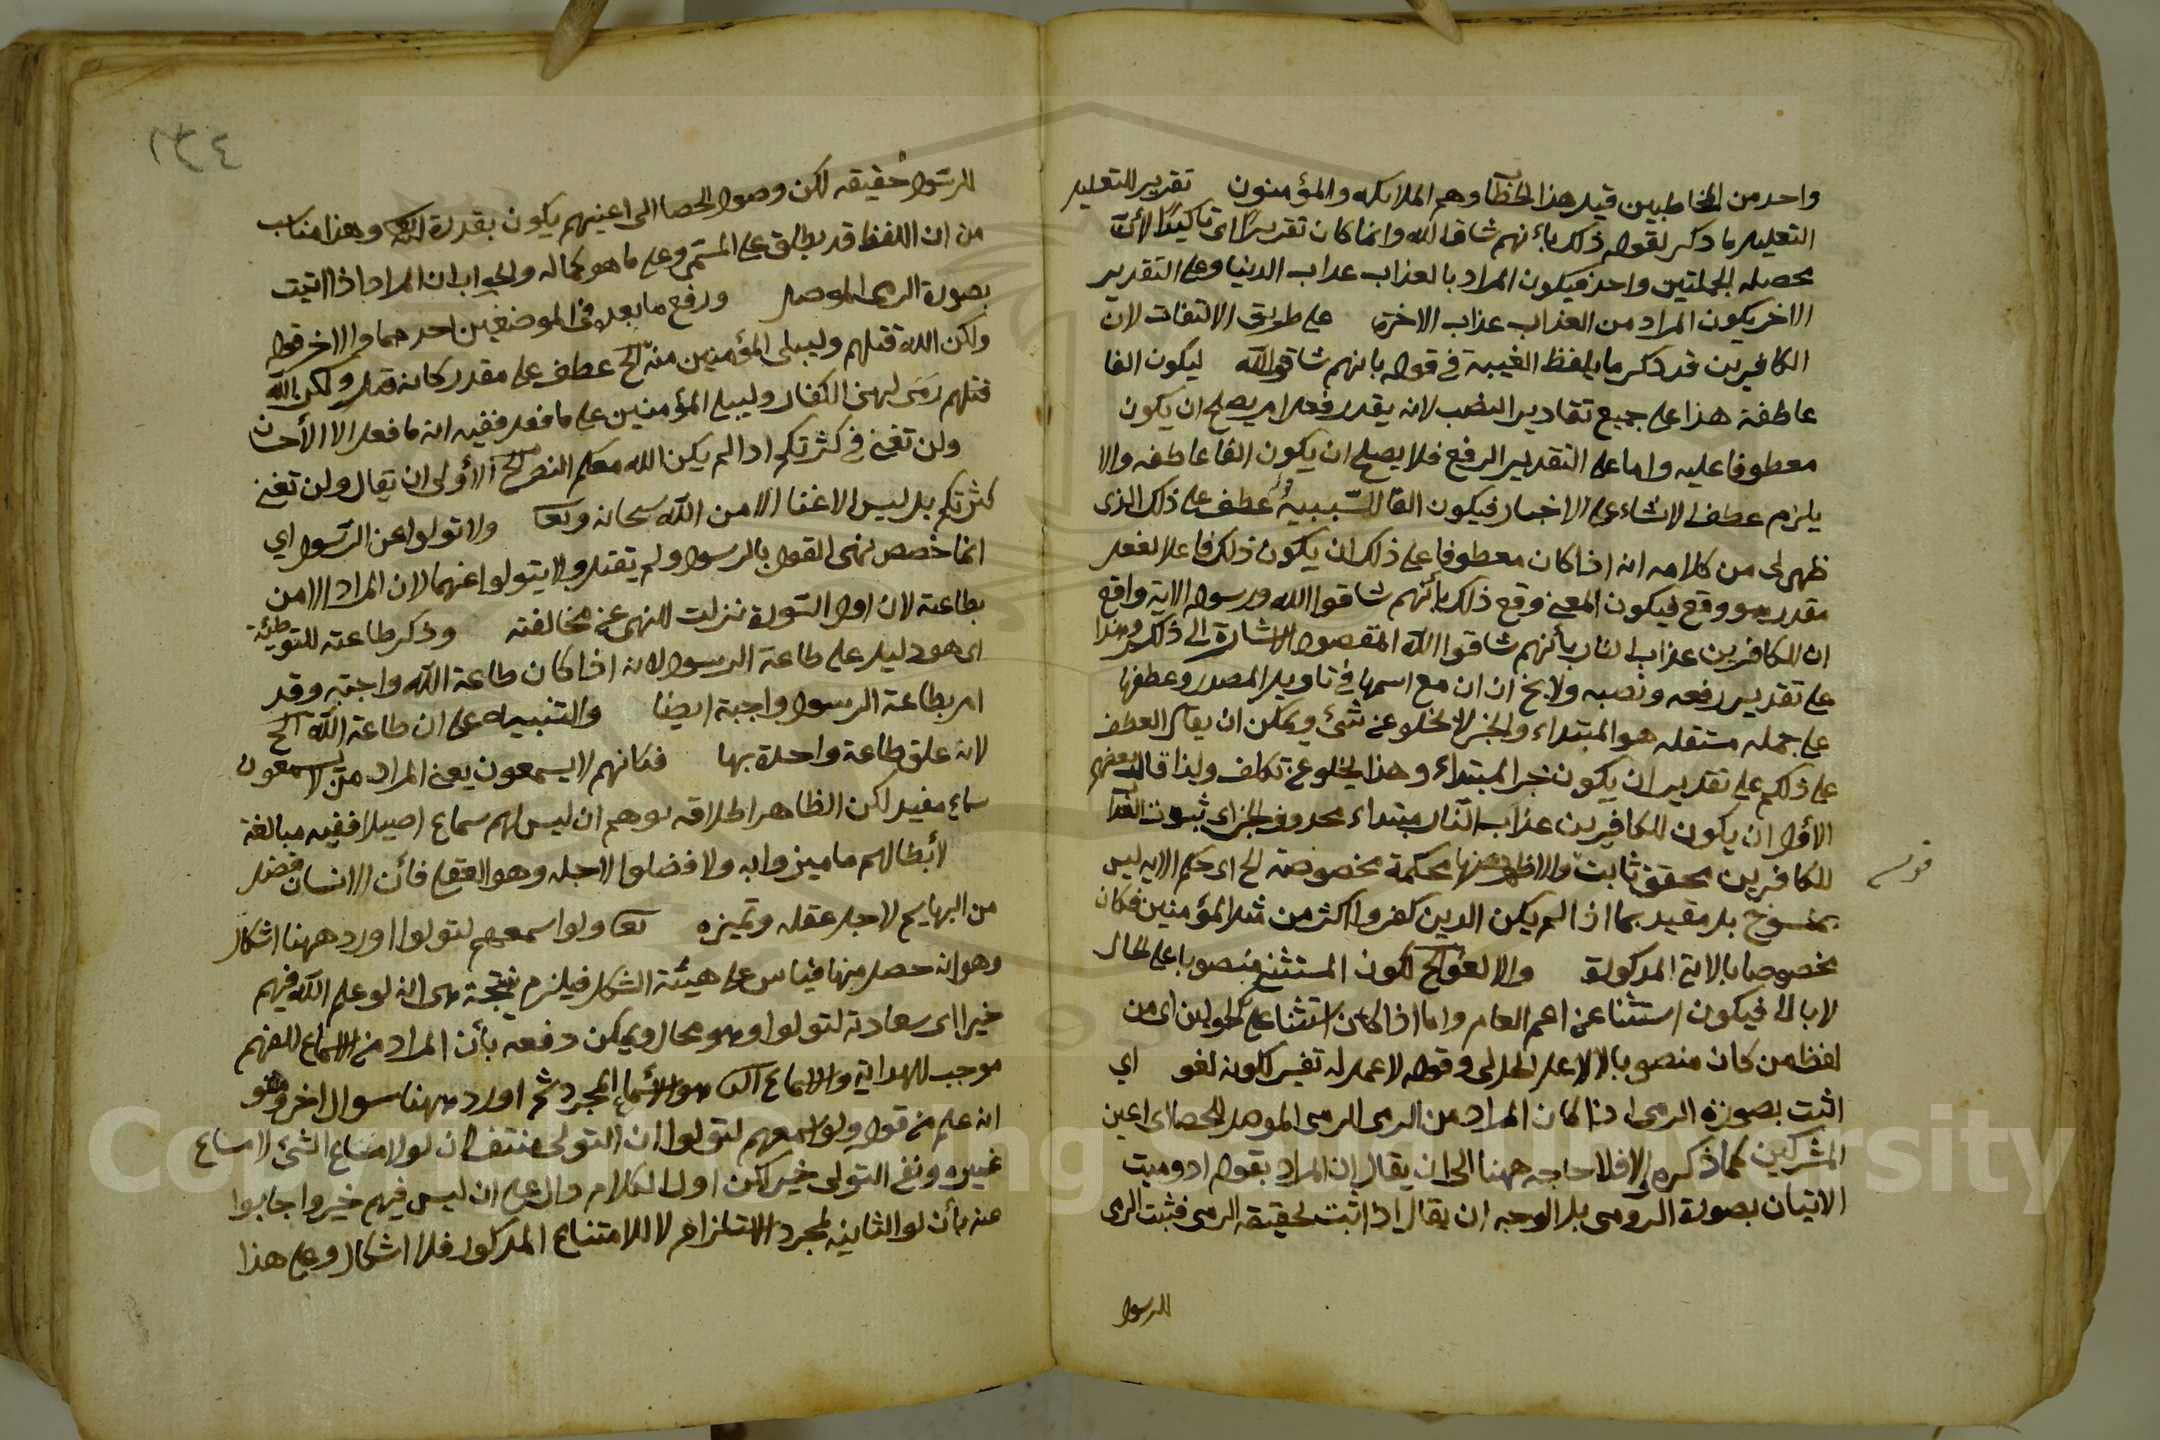 واحد من المخاطبين قبل هذا الخطاب وهم الملائكة والمؤمنون تقرير للتعليل
التعليل ما ذكر لقوله ذلك بأنهم شاقوا الله وانما كان تقريرًا اى تأكيدًا لأن
محصله الجملتين واحد فيكون المراد بالعذاب عذاب الدنيا وعلى التقدير
الاخر يكون المراد من العذاب عذاب الاخرة على طريق الالتفات لان
الكافرين قد ذكر ما بلفظ الغيبة في قوله بانهم شاقوا الله ليكون الفا
عاطفة هذا على جميع تقادير النصب لانه يقدر فعل امر يصلح ان يكون
معطوفا عليه واما على التقدير الرفع فلا يصلح ان يكون الفا عاطفه والا
يلزم عطف الانشاء على الاخبار فيكون الفا للسّببية او عطف على ذلك الذى
ظهر لى من كلامه انه اذا كان معطوفا على ذلك ان يكون ذلك فاعلا لفعل
مقدر هو وقع فيكون المعنى وقع ذلك بأنهم شاقوا الله ورسوله الاية واقع
ان للكافرين عذاب النار بأنهم شاقوا الله المقصود الاشارة الى ذلك وهذا
على تقدير رفعه ونصبه ولا يخ ان ان مع اسمها في تاويل المصدر وعطفها
على جمله مستقله هو المبتداء والخبر لا يخلو عن شئ ويمكن ان يقال العطف
على ذلكم على تقدير ان يكون خبر المبتداء وهذا يخلو عن تكلف ولذا قال بعضهم
الأول ان يكون للكافرين عذاب النار مبتداء محذوف الخبر اى ثبوت العذاب
للكافرين محقق ثابت والاظهر انها محكمة مخصوصة الخ اى حكم الاية ليس
بمنسوخ بل مقيد بما اذا لم يكن الذين كفروا اكثر من مثلى المؤمنين فكان
مخصوصا بالاية المذكورة والا لغو الخ لكون المستثنى منصوبا على الحال
لا بالا فيكون استثنا عن اعم العام واما اذا كان استثنا على المولين اى من
لفظ من كان منصوبا بالا لا على الحال وقوله لا عمل له تفسير لكونه لغو اي
اثبت بصورة الرمى اذا كان المراد من الرمى الرمى الموصل للحصا اى اعين
المشركين كما ذكره الا فلا حاجه ههنا الى ان يقال ان المراد بقوله اذ رميت
الاتيان بصورة الرمى بل الوجه ان يقال اذ اثبت لحقيقة الرمى فثبت الرمى
للرسول
١٣٤
للرسول حقيقه لكن وصول الحصا الى اعينهم يكون بقدرة الله وهذا مناسب
من ان اللفظ قد يطلق على المسمى وعلى ما هو كماله والجواب ان المراد اذا اتيت
بصورة الرمى الموصل ورفع ما بعده في الموضعين احدهما والاخر قوله
ولكن الله قتلهم وليبلى المؤمنين منه الخ عطف على مقدر كانه قيل ولكن الله
قتلهم رمى ليهن الكفار وليبلى المؤمنين على ما فعل ففيه انه ما فعل الا الأحسان
ولن تغنى في كثرتكم اذا لم يكن الله معكم النصر الخ الأولى ان يقال ولن تغنى
كثرتكم بل ليس الاغنا الا من الله سبحانه وتعا ولا تولوا عن الرسول اي
انما خصص نهى القول بالرسول ولم يقتل ولا يتولوا عنهما لان المراد الامن
بطاعته لان اول السورة نزلت للنهى عن مخالفته وذكر طاعته للتوطئة
اى هو دليل على طاعة الرسول لانه اذا كان طاعة الله واجبة وقد
امر بطاعة الرسول واجبة ايضا والتنبيه على ان طاعة الله الخ
لانه علق طاعة واحدة بها فكانهم لا يسمعون يعنى المراد من لا يسمعون
سماع مفيد لكن الظاهر اطلاقه يوهم ان ليس لهم سماع اصلا ففيه مبالغة
لأبطالهم ما ميزوا به ولا فضلوا لاجله وهو العقل فأن الانسان فضل
من البهايم لاجل عقله وتميزه تعا ولو اسمعهم لتولوا اورد ههنا اشكال
وهو انه حصل منها قياس على هيئة الشكل فيلزم نتيجة هى انه لو علم الله فيهم
خيرا اى سعادة لتولوا وهو محال ويمكن دفعه بأن المراد من الاسماع للفهم
موجب للهداية والاسماع الذى هو الأسماع المجرد ثم اورد ههنا سوال اخر وهو
انه علم من قوله ولو اسمعهم لتولوا ان التولى منتف لان لو لامتناع الشئ لامتناع
غيره ونفى التولى خير لكن اول الكلام دال على ان ليس فيهم خير واجابوا
عنه بأن لو الثانيه لمجرد الاستلزام لا للامتناع المذكور فلا اشكال وعلى هذا